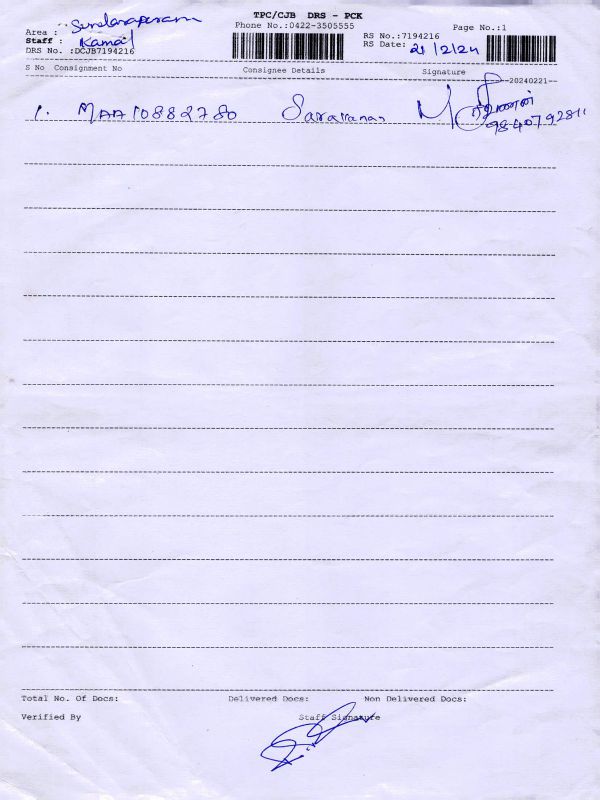 TPC/CJB DRS - PCK
Area : Sundarapuram
Phone No.:0422-3505555
Page No.:1
Staff : Kamal
RS No.:7194216
DRS No. :DCJB7194216
RS Date: 21/2/24
S No Consignment No Consignee Details Signature
--20240221--
1. MAA108882780 Saravanan சரவணன்
9840792811
Total No. Of Docs: Delivered Docs: Non Delivered Docs:
Verified By Staff Signature